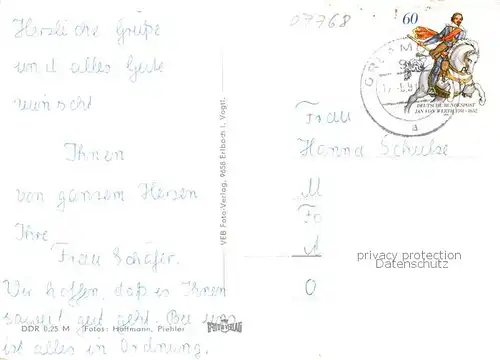 Herzliche Grüße
und alles Gute
wünscht
Ihnen
von ganzem Herzen
Ihre
Frau Schäfer.
Wir hoffen, daß es Ihnen
soweit gut geht. Bei uns
ist alles in Ordnung.
DDR 0,25 M Fotos: Hoffmann, Piehler
VEB Foto-Verlag, 9658 Erlbach i. Vogtl.
FOTO VERLAG
07768
60
DEUTSCHE BUNDESPOST
JAN VON WERTH 1591-1652
ORLAM
a
Frau
Hanna Schulze
M
Fo
A
O
privacy protection
Datenschutz